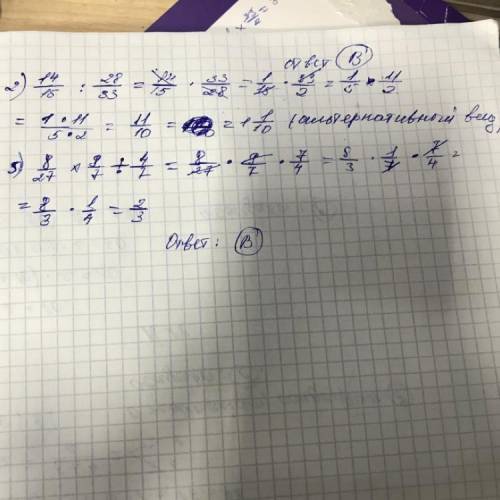 ответ (В)
2) 14/15 : 28/33 = 14/15 · 33/28 = 1/15 · 33/2 = 1/5 · 11/2
= 1·11/5·2 = 11/10 = = 1 1/10 (альтернативный
5) 8/27 × 9/7 ÷ 4/7 = 8/27 · 9/7 · 7/4 = 8/3 · 1/7 · 7/4 =
= 8/3 · 1/4 = 2/3
Ответ: (В)